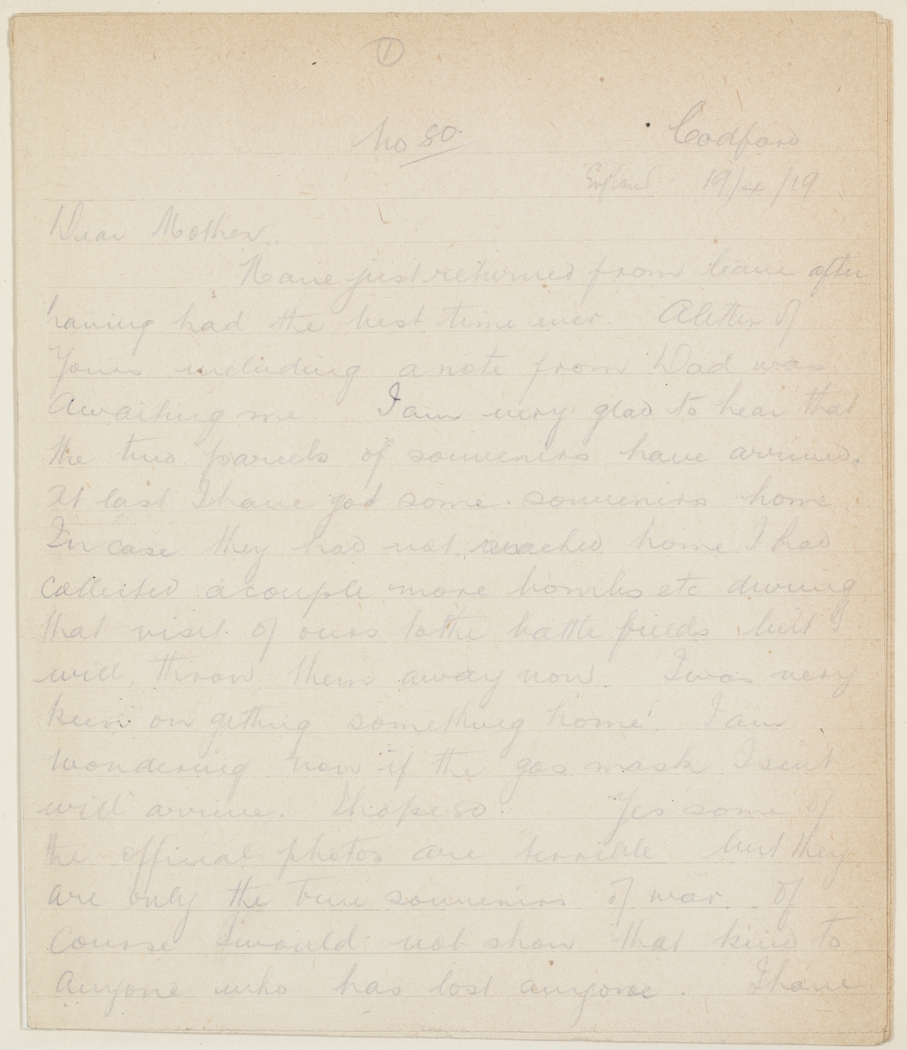 1
No 80. Codford
England 19/4/19
Dear Mother.
Have just returned from leave after
having had the best time ever. A letter of
Yours including a note from Dad was
awaiting me. I am very glad to hear that
the two parcels of souvenirs have arrived.
At last I have got some souvenirs home.
In case they had not reached home I had
collected a couple more bombs etc during
that visit of ours to the battle fields but I
will throw them away now. I was very
keen on getting something home. I am
wondering now if the gas mask I sent
will arrive. I hope so. Yes some of
the official photos are terrible but they
are only the true souvenirs of war. Of
course I would not show that kind to
anyone who has lost anyone. I have